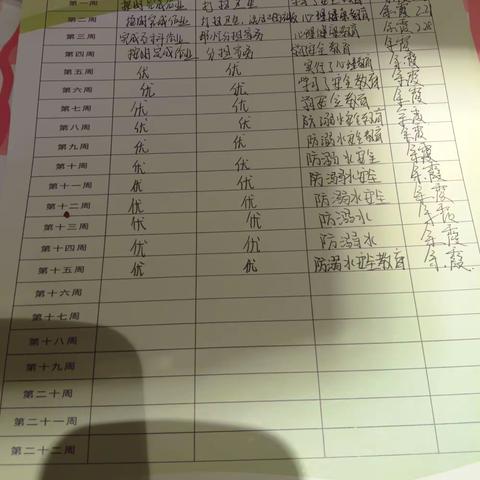 第一周 按时完成作业 打扫卫生
第二周 按时完成作业 打扫卫生 心理健康教育 余霞
第三周 完成各科作业 心理健康教育 余霞
第四周 按时完成作业 分担家务 安全教育 余霞
第五周 优 优 心理教育 余霞
第六周 优 优 学习了安全教育 余霞
第七周 优 优 安全教育 余霞
第八周 优 优 防溺水安全教育 余霞
第九周 优 优 防溺水安全教育 余霞
第十周 优 优 防溺水安全 余霞
第十一周 优 优 防溺水安全 余霞
第十二周 优 优 防溺水安全 余霞
第十三周 优 优 防溺水 余霞
第十四周 优 优 防溺水 余霞
第十五周 优 优 防溺水安全教育 余霞
第十六周
第十七周
第十八周
第十九周
第二十周
第二十一周
第二十二周